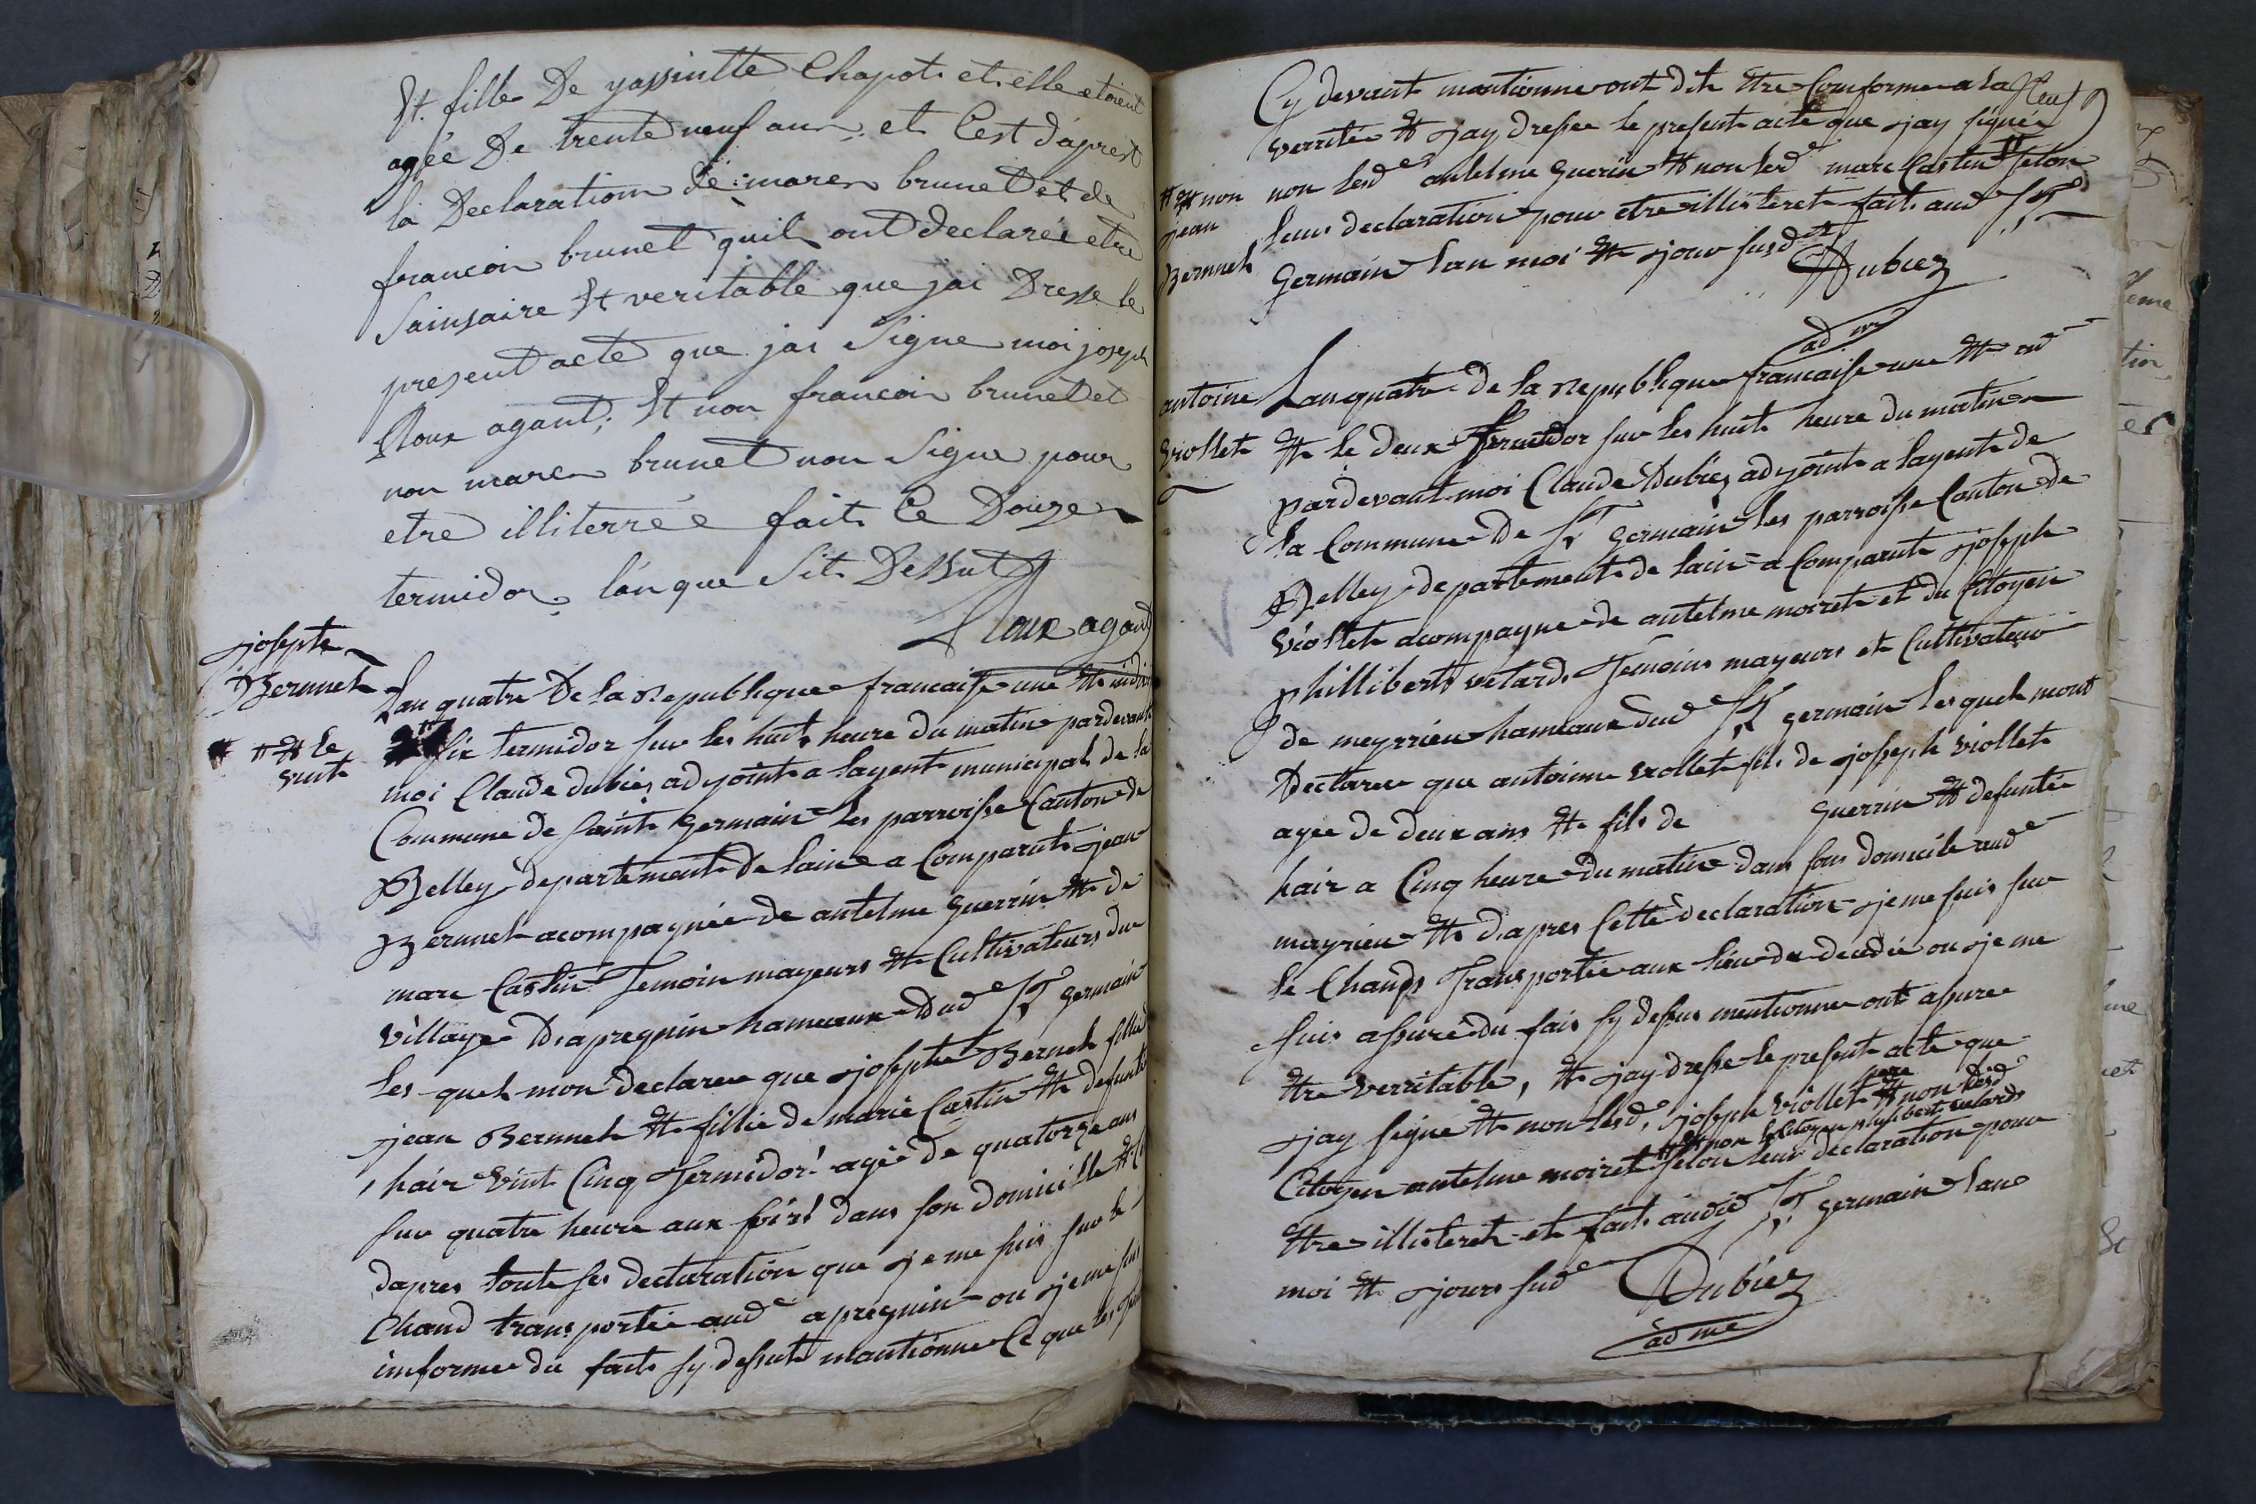 Et fille De yassintte Chapot et elle etoient
agée De trente neuf ans et C'est d'aprest
la Declaration de maren brunet et de
francoin brunet quil ont declarée etre
Sainsaire Et veritable que jai Dresse le
present acte que jai Signe moi joseph
Roux agant; Et non francoin brunet et
non maren brunet non Signe pour
etre illiterrée fait Ce Douze
termidor lan que Sit Dessut
Roux agant
josepte
Bernnet
Lan quatre De la Republique francaise une Et indi
# # le
vint
six termidor sur les huit heure du matin pardevant
moi Claude dubiez adjoint a layent municipal de la
Commune de saint Germain les parroisse Canton de
Belley departement De lain a Comparut jean
Bernnet acompagnée de antelme guerrin Et de
marc Castin Temoin mayeurs Et Cultivateurs du
village D'apregnin hameaux dud St germain
les quel mon declaree que josepte Bernet fille de
jean Bernnet Et fillie de marie Castin Et defunte
hair vint Cinq Termidor agée de quatorze ans
sur quatre heure aux soirs dans son domicille Et
dapres toute ses declaration que je me suis sur le
Chand transportée aud apregnin ou je me suis
informee du fait sy dessut mantionne Ce que les
Cy devant mantionne ont dit Etre Conforme a la
verritée Et jay dresse le present acte que jay signée
non lesd antelme guerin Et non led marc Castin # selon
# # non
jean
Bernnet
leurs declaration pour etre illisteret fait aud St
Germain lan moi Et jour susd
Dubiez
ad
antoine
viollet
Lan quatre De la Republique francaise une Et ind
Et le deux frucdor sur les huit heure du matin
pardevant moi Claude Dubiez adjoint a layent de
la Commune De St Germain les parroisse Canton de
Belley departement de lain a Comparut joseph
viollet acompagne de antelme moiret et du Citoyen
Phillibert velard Temoins mayeurs et Cultivateur
de meyrrieu hameaux dud St germain les quel mont
Declaree que antoinne viollet fils de joseph viollet
agee de deux ans Et fils de guerrin Et defuntée
hair a Cinq heure du matin dans sons domicile aud
meyrieu Et dapres Cette declaration je me suis sur
le Chands Transportée aux lieu de decedée ou je me
suis assuré du fais sy dessus mentionne ont assuree
Etre verritable, Et jay dresse le present acte que
jay signe Et non lesd joseph viollet pere Et non lesd
# Et non le Citoyen philibert velards
Citoyen antelme moiret # selon leur declaration pour
Etre illisteret et fait audid St germain lan
moi Et jours sud
Dubiez
ad me